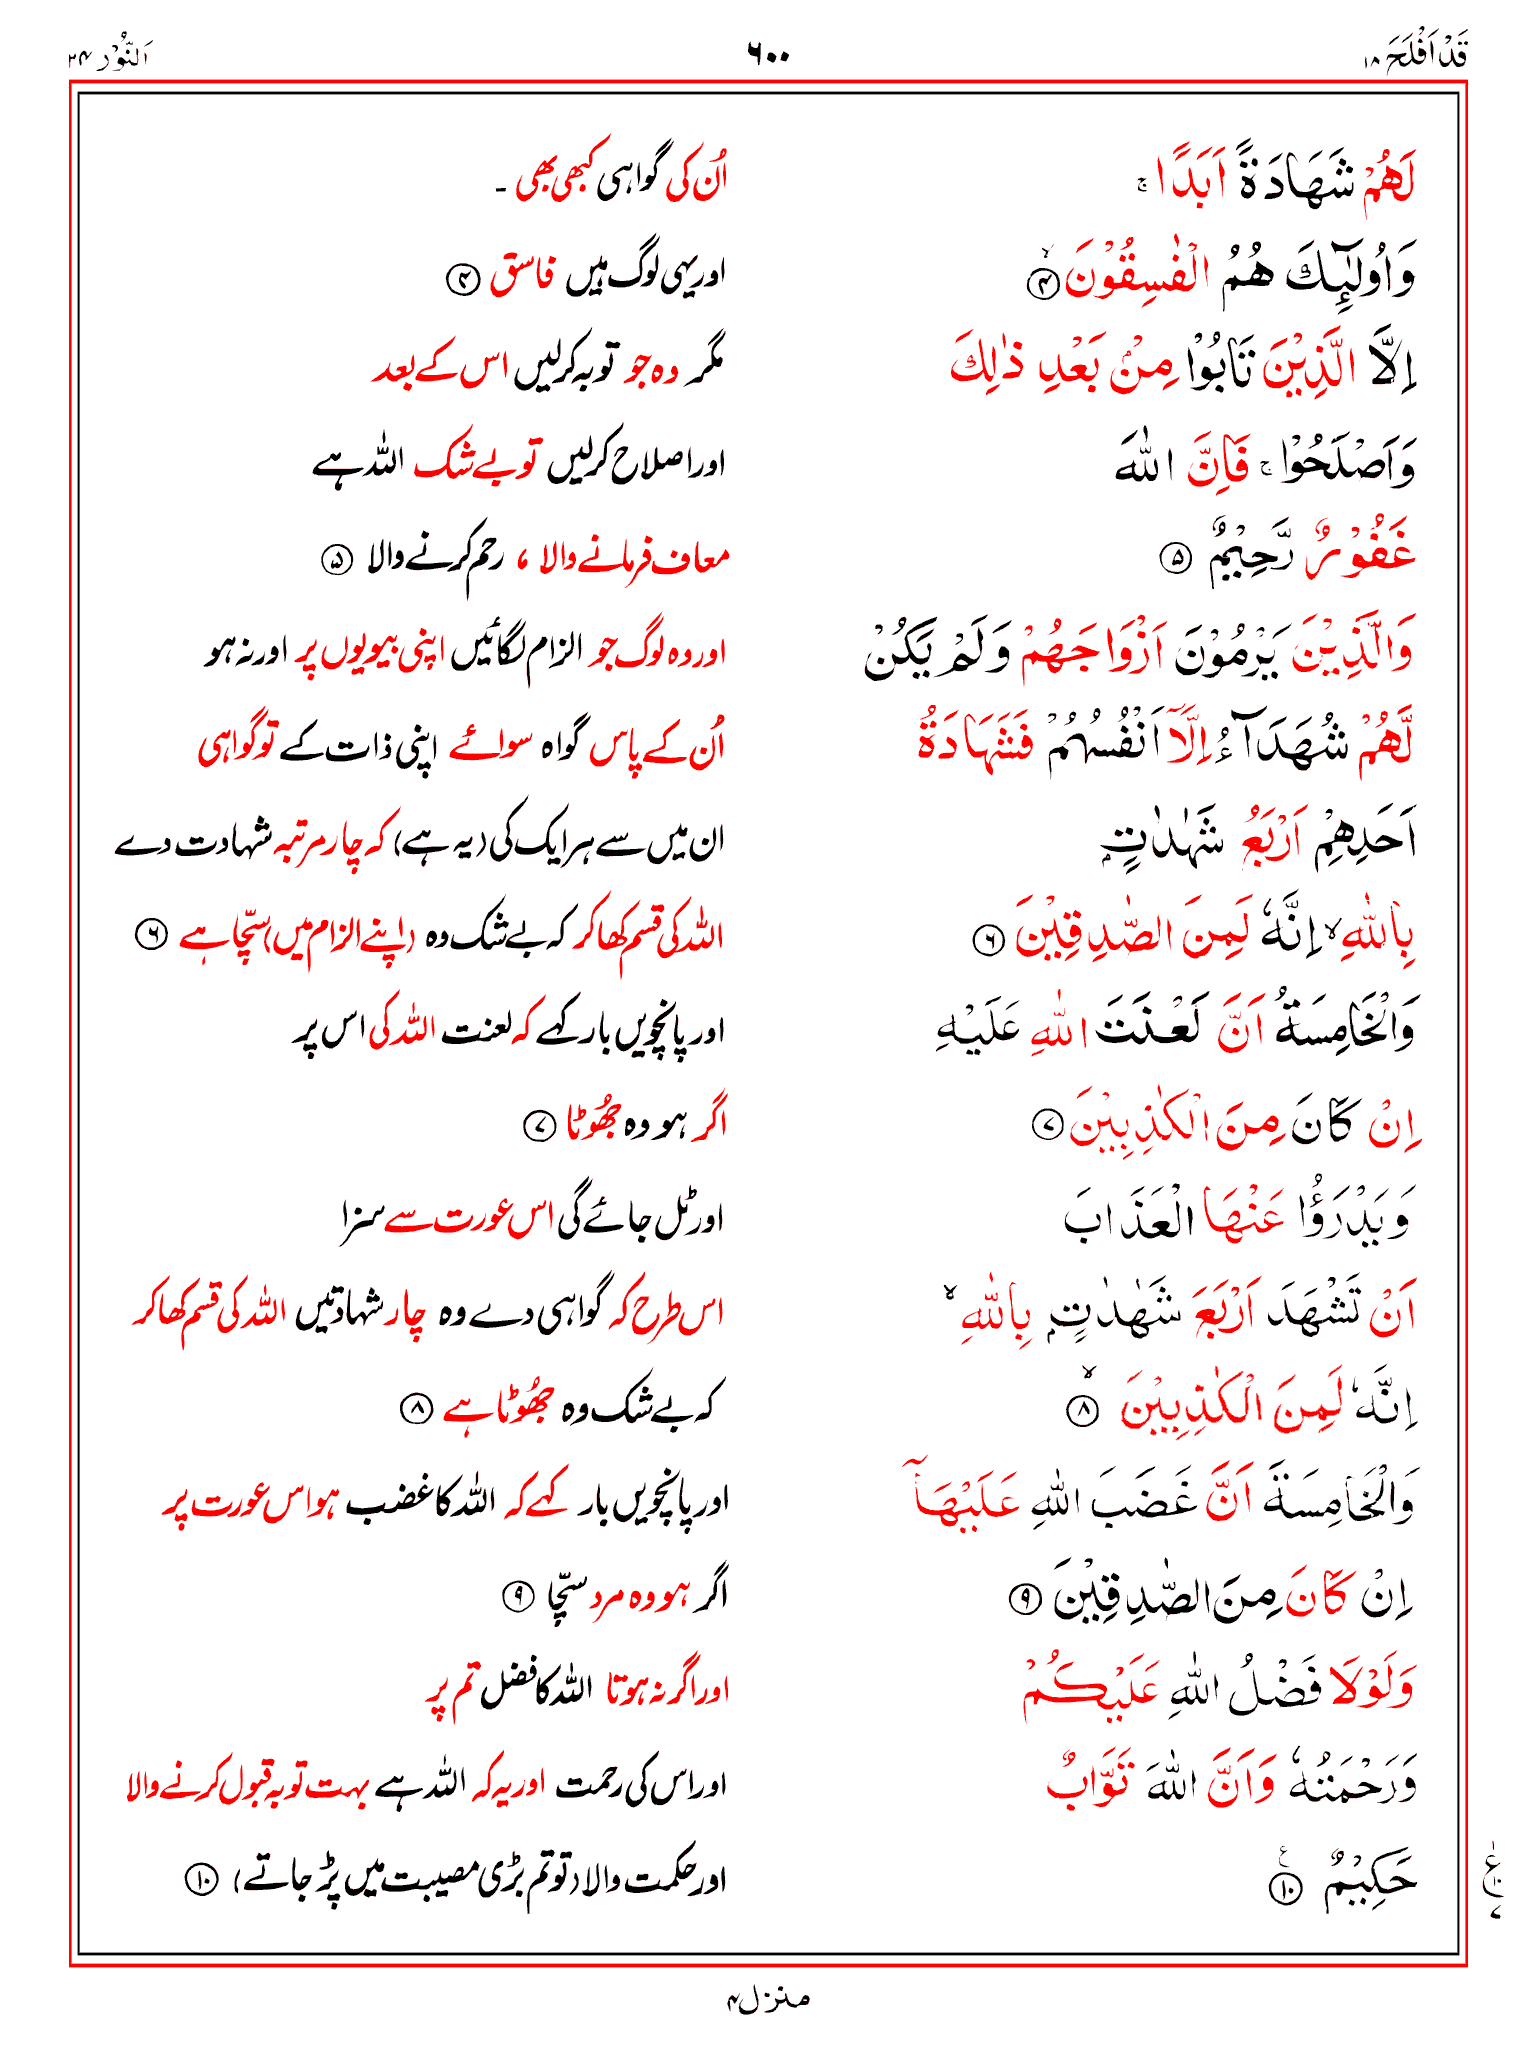 قَدْ اَفْلَحَ ۱۸
۶۰۰
اَلنُّوْر ۲۴
لَهُمْ شَهَادَةً اَبَدًا ۚ
اُن کی گواہی کبھی بھی ۔
وَاُولٰٓئِكَ هُمُ الْفٰسِقُوْنَ ۙ﴿۴﴾
اور یہی لوگ ہیں فاسق ﴿۴﴾
اِلَّا الَّذِيْنَ تَابُوْا مِنْۢ بَعْدِ ذٰلِكَ
مگر وہ جو توبہ کرلیں اس کے بعد
وَاَصْلَحُوْا ۚ فَاِنَّ اللّٰهَ
اور اصلاح کرلیں تو بے شک اللہ ہے
غَفُوْرٌ رَّحِيْمٌ ﴿۵﴾
معاف فرمانے والا ، رحم کرنے والا ﴿۵﴾
وَالَّذِيْنَ يَرْمُوْنَ اَزْوَاجَهُمْ وَلَمْ يَكُنْ
اور وہ لوگ جو الزام لگائیں اپنی بیویوں پر اور نہ ہو
لَّهُمْ شُهَدَآءُ اِلَّاۤ اَنْفُسُهُمْ فَشَهَادَةُ
اُن کے پاس گواہ سوائے اپنی ذات کے تو گواہی
اَحَدِهِمْ اَرْبَعُ شَهٰدٰتٍۭ
ان میں سے ہر ایک کی (یہ ہے) کہ چار مرتبہ شہادت دے
بِاللّٰهِ ۙ اِنَّهٗ لَمِنَ الصّٰدِقِيْنَ ﴿۶﴾
اللہ کی قسم کھا کر کہ بے شک وہ (اپنے الزام میں) سچّا ہے ﴿۶﴾
وَالْخَامِسَةُ اَنَّ لَعْنَتَ اللّٰهِ عَلَيْهِ
اور پانچویں بار کہے کہ لعنت اللہ کی اس پر
اِنْ كَانَ مِنَ الْكٰذِبِيْنَ ﴿۷﴾
اگر ہو وہ جھُوٹا ﴿۷﴾
وَيَدْرَؤُا عَنْهَا الْعَذَابَ
اور ٹل جائے گی اس عورت سے سزا
اَنْ تَشْهَدَ اَرْبَعَ شَهٰدٰتٍۭ بِاللّٰهِ ۙ
اس طرح کہ گواہی دے وہ چار شہادتیں اللہ کی قسم کھا کر
اِنَّهٗ لَمِنَ الْكٰذِبِيْنَ ۙ﴿۸﴾
کہ بے شک وہ جھُوٹا ہے ﴿۸﴾
وَالْخَامِسَةَ اَنَّ غَضَبَ اللّٰهِ عَلَيْهَاۤ
اور پانچویں بار کہے کہ اللہ کا غضب ہو اس عورت پر
اِنْ كَانَ مِنَ الصّٰدِقِيْنَ ﴿۹﴾
اگر ہو وہ مرد سچّا ﴿۹﴾
وَلَوْلَا فَضْلُ اللّٰهِ عَلَيْكُمْ
اور اگر نہ ہوتا اللہ کا فضل تم پر
وَرَحْمَتُهٗ وَاَنَّ اللّٰهَ تَوَّابٌ
اور اس کی رحمت اور یہ کہ اللہ ہے بہت توبہ قبول کرنے والا
حَكِيْمٌ ﴿۱۰﴾ ع
اور حکمت والا (تو تم بڑی مصیبت میں پڑ جاتے) ﴿۱۰﴾
ع ۱۰ ۷
منزل ۴